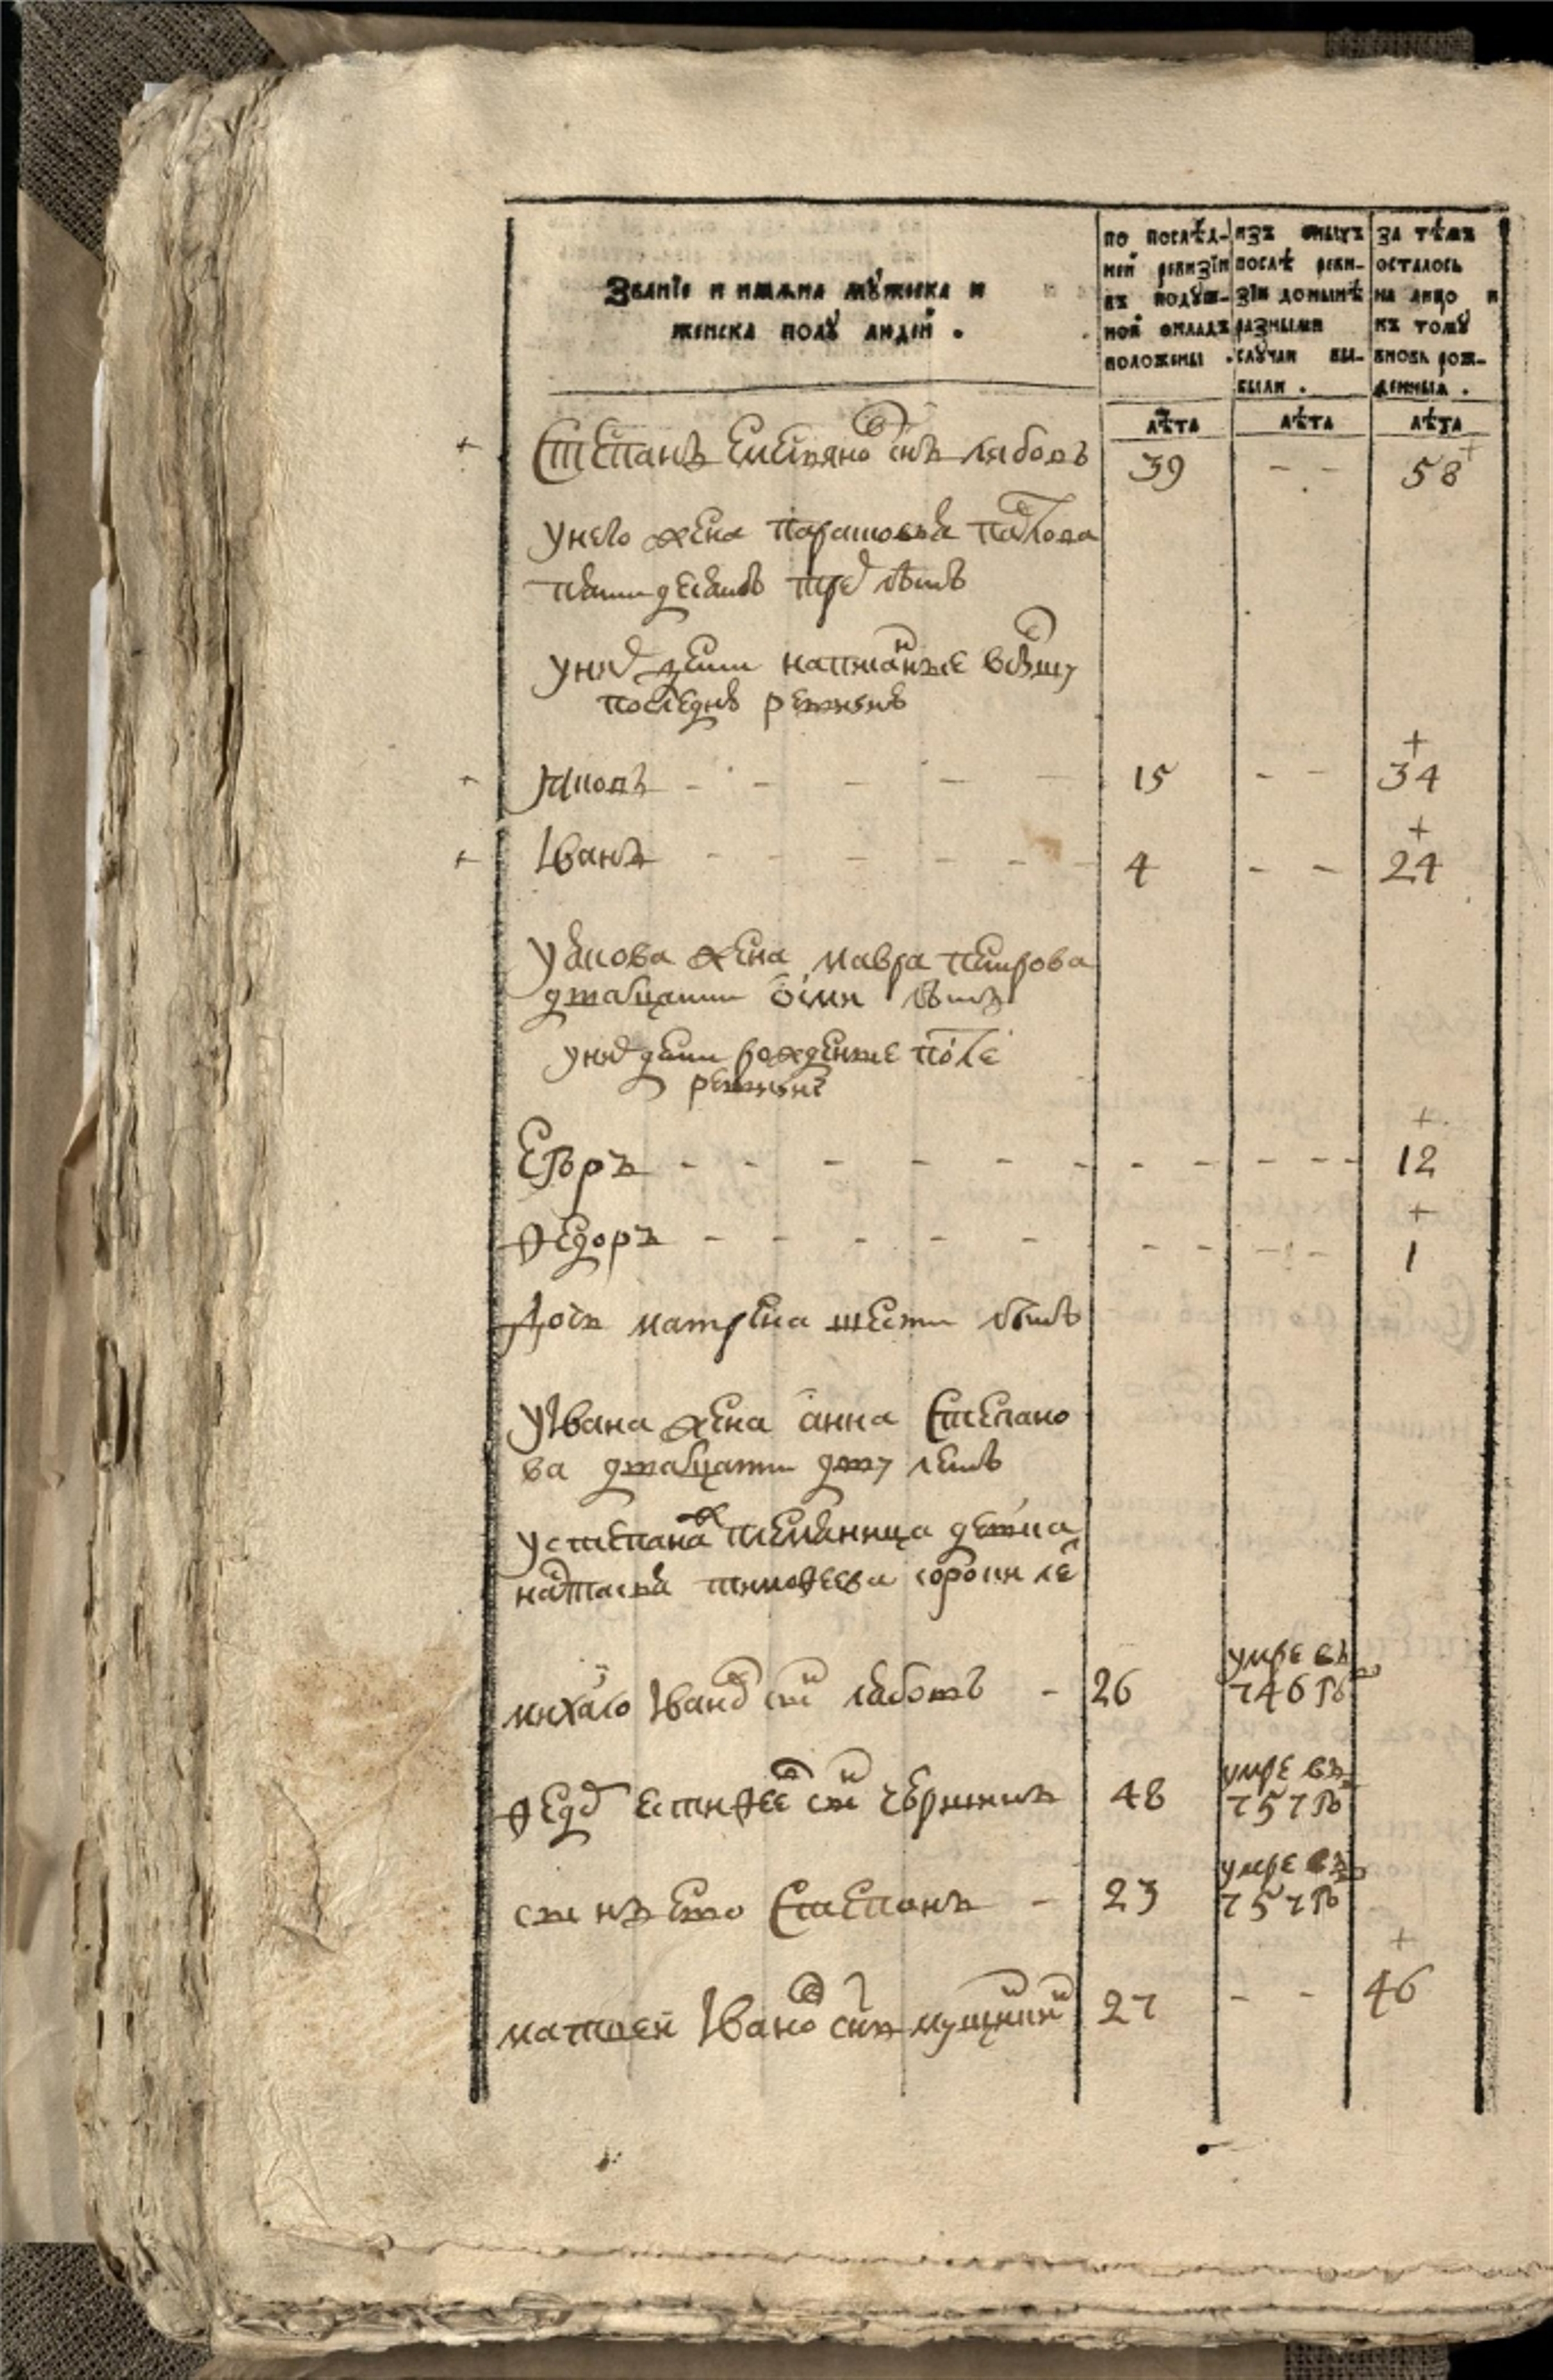 Званїе и имѧна мꙋжеска и
женска полꙋ людей .
по послѣд-
ней ревизїи
въ подꙋш-
ной окладъ
положены .
изъ оныхъ
послѣ реви-
зїи донынѣ
разными
слꙋчаи вы-
были .
за тѣмъ
осталось
на лицо и
къ томꙋ
вновь рож-
денныѧ .
лѣта лѣта лѣта
Степанъ снъ 39 - - 58
у него жена парасковья павлова
пятидесять трех летъ
у них дети написанные
последнюю ревизию
Яковъ - - - - - 15 - - 34
Іванъ - - - - - 4 - - 24
у якова жена мавра петрова
дватцати осми летъ
у них дети рожденные после
ревизии
Егоръ - - - - - - - - - - - 12
Ѳедоръ - - - - - - - - - 1
Дочь матрена шести летъ
У Івана жена анна Степано
ва дватцати дву летъ
у степана ж племянница девка
настасья тимоѳеева сорока ле
михайло Іванов снъ - 26 умре въ
746 го
Ѳедор естиѳеев снъ 48 умре въ
757 го
снъ ево Степанъ - 23 умре въ
757 го
матвей Іванов снъ 27 - - 46